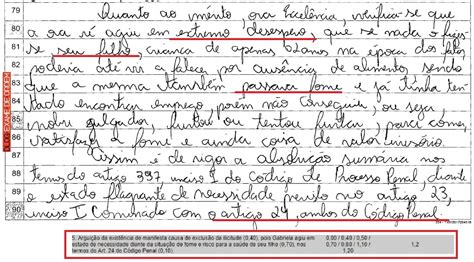 79 Quanto ao mérito, ora Excelência, verifica-se que
80 a ora ré agiu em extremo desespero, que se nada o fizes-
81 se seu filho, criança de apenas 02 anos na época dos fatos
82 poderia até vir a falecer por ausência de alimento, sendo
83 que a mesma também passava fome e já tinha ten-
84 tado encontrar emprego, porém não conseguiu, ou seja
85 nobre julgador, furtou ou tentou furtar, para comer
86 satisfazer a fome e ainda coisa de valor irrisório.
87 Assim é de rigor a absolvição sumária nos
88 termos do artigo 397, inciso I do Código de Processo Penal, diante
89 o estado flagrante de necessidade previsto no artigo 23,
90 inciso I combinado com o artigo 24, ambos do Código Penal.
5. Arguição da existência de manifesta causa de exclusão da ilicitude (0,40), pois Gabriela agiu em
estado de necessidade diante da situação de fome e risco para a saúde de seu filho (0,70), nos
termos do Art. 24 do Código Penal (0,10).
0,00 / 0,40 / 0,50 /
0,70 / 0,80 / 1,10 /
1,20
1,2